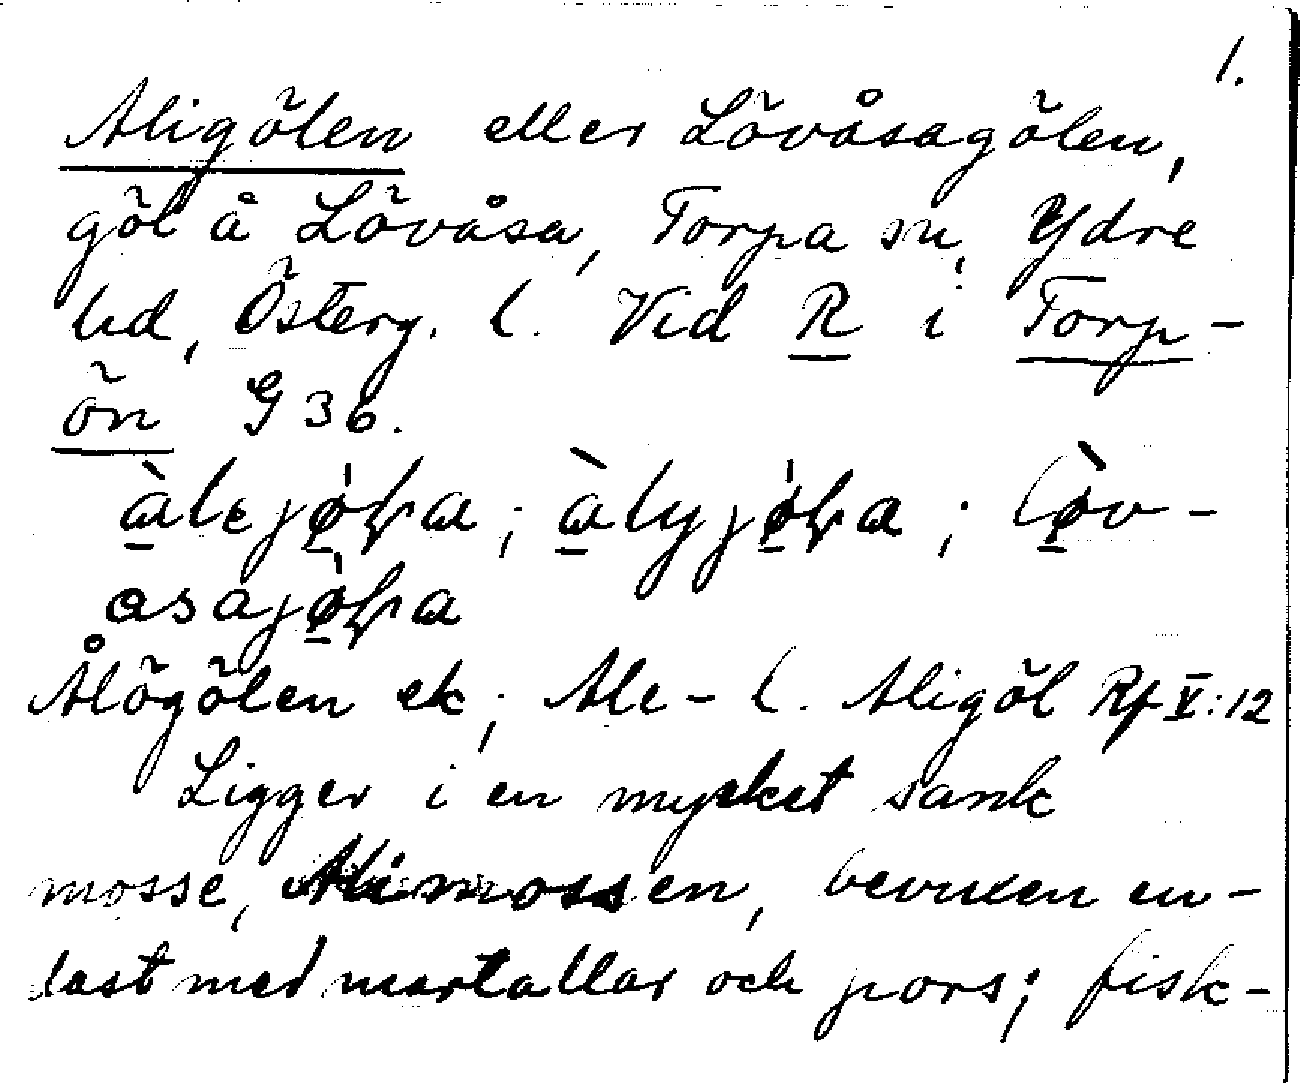 1.
Aligölen eller Lövåsagölen,
göl å Lövåsa, Torpa sn, Ydre
hd, Österg. l. Vid R i Torp-
ön G 36.
àlejøla; àlyjøla; lòv-
asajøla
Ålögölen ek; Ale- l. Aligöl Rf V:12
Ligger i en mycket sank
mosse, Alimossen, bevuxen en-
dast med martallar och pors; fisk-